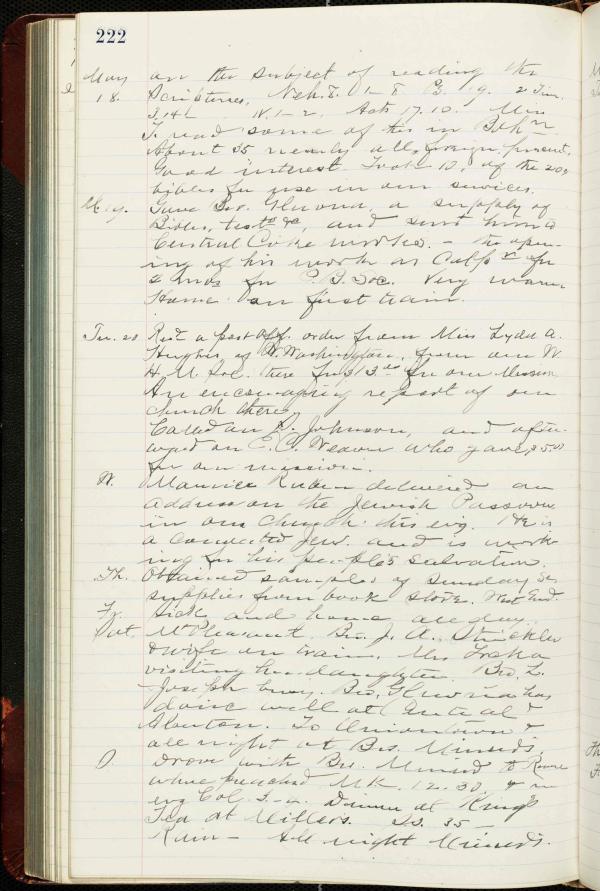 222
May on the subject of reading the
18. Scriptures, Neh. 8. 1-8 Ps. 19. 2 Tim.
3.14- IV. 1-2, Acts 17.10. Miss
T. read some of this in Boh
About 35 nearly all foreign, present,
Good interest. Took 10, of the 200
bibles for use in our services.
M. 19. Gave Bro. a supply of
Bibles, &c, and sent him to
Central Coke works. - the open-
ing of his work as Colp for
2 mos for C. B. Soc. Very warm
Home on first train.
Tu. 20 Recd a post off. order from Miss Lydia A.
Hughes, of W. Washington, from our W.
H. M. Soc. there for for our Mission
An encouraging report of our
church there.
Called on Johnson, and after-
ward on E. C. Weaver who gave 5.00
for our mission.
W. Maurice Ruben delivered an
address on the Jewish Passover
in our church this evg. He is
a converted Jew. and is work-
ing for his people's salvation.
Th. Obtained samples of Sunday Sc
supplies from book store. West End.
Fr. Sick and home all day.
Sat. Mt Pleasant. Bro. J. A. Strickler
& wife on train, Mrs
visiting her daughter. Bro. L.
Joseph busy. Bro. has
done well at Central &
Alverton. To Uniontown &
all night at Bro. Minerd's.
D. Drove with Bro. Minerd to
where preached Mk. 12.30, & in
evg Col. Dinner at King's
Tea at Miller's. 35 -
Rain - All night Minerd's.